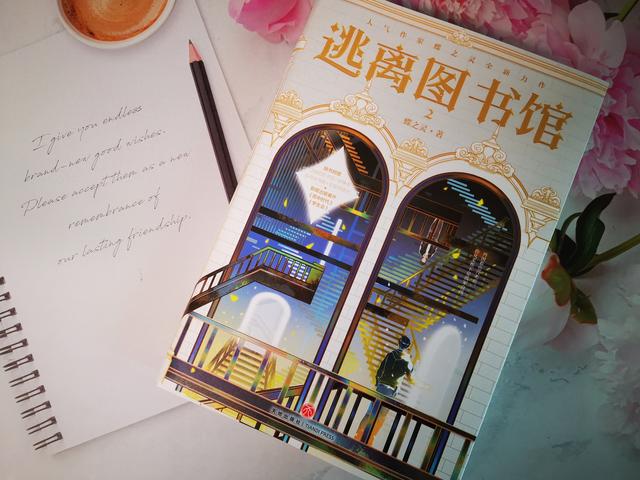 I give you endless
brand-new good wishes.
Please accept them as a new
remembrance of
our lasting friendship.
人气作家蝶之灵全新力作
逃离图书馆
2
蝶之灵·著
天地出版社 | TIANDI PRESS